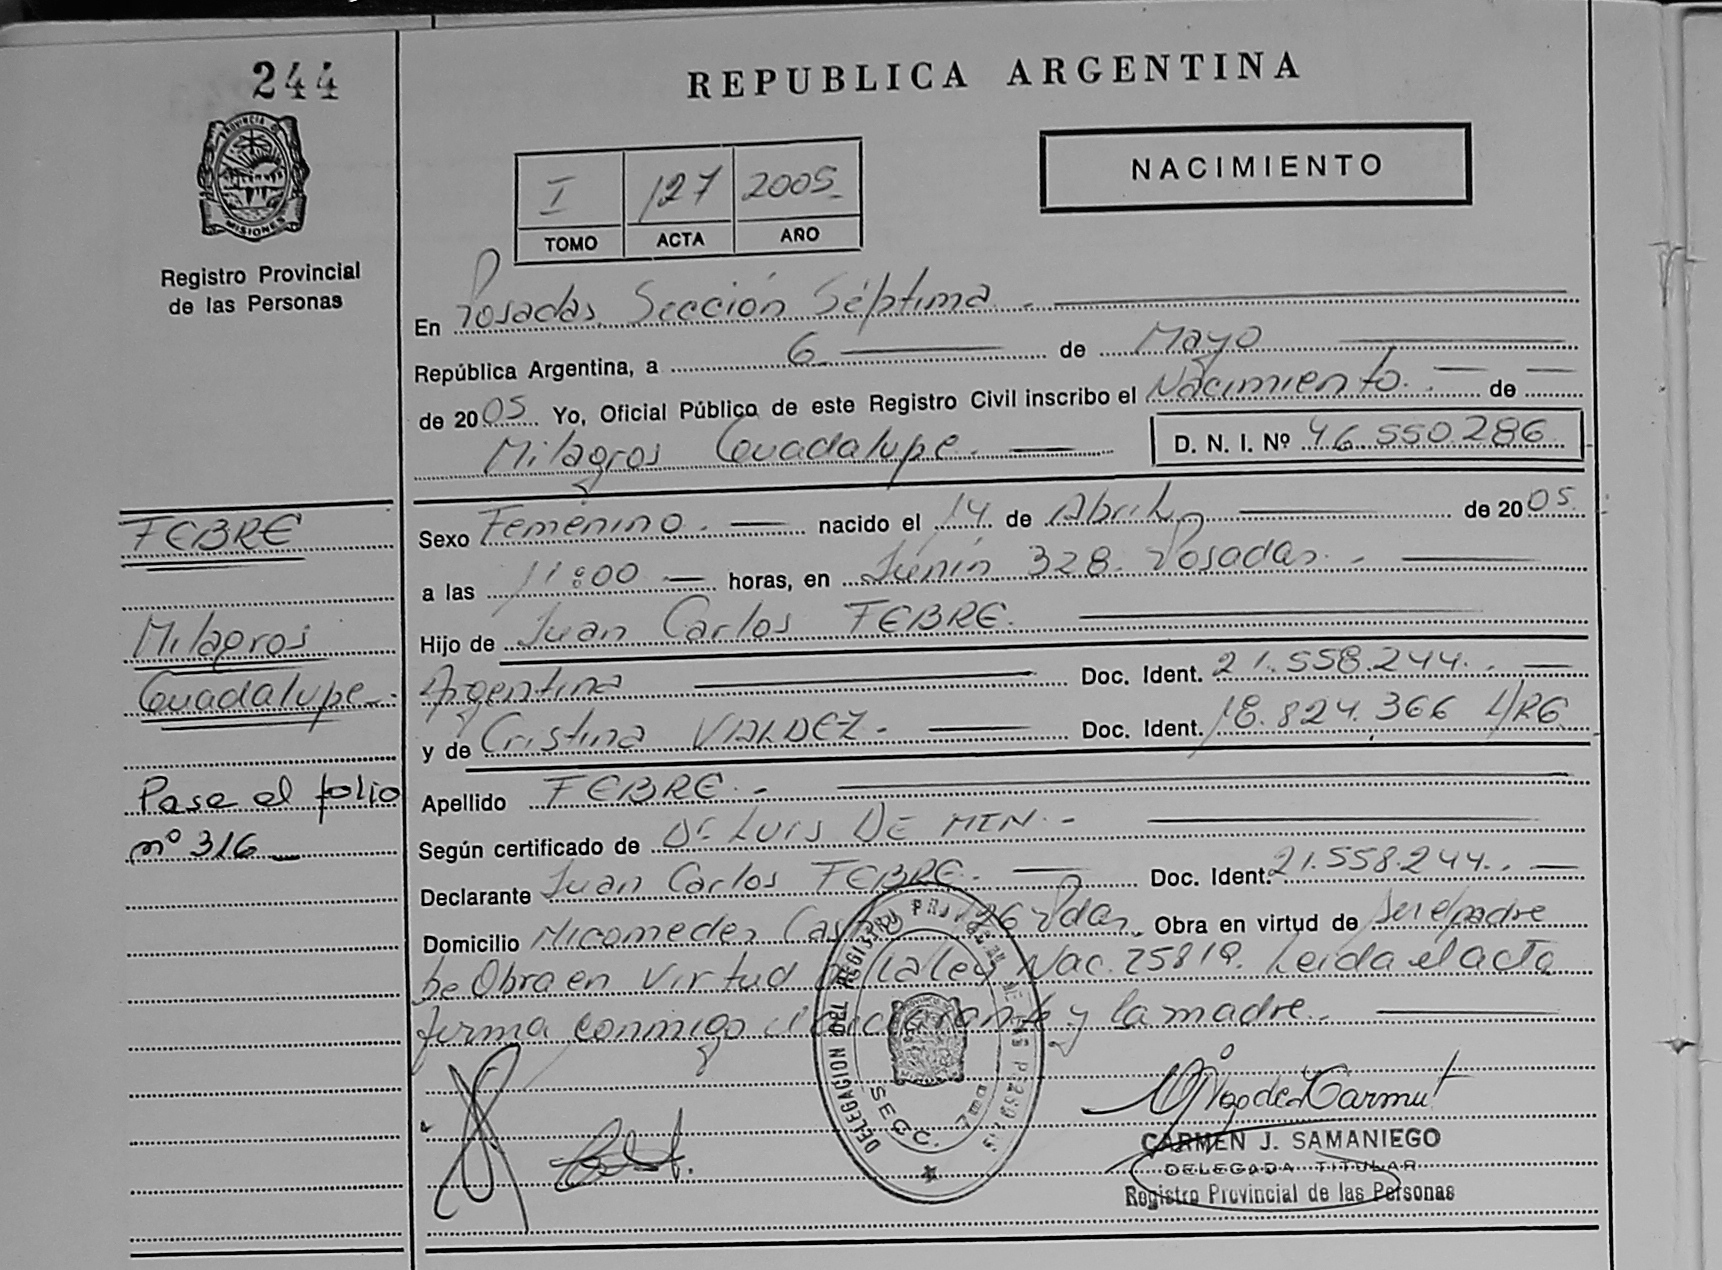 244
REPUBLICA ARGENTINA
PROVINCIA DE
MISIONES
Registro Provincial
de las Personas
I 127 2005
TOMO ACTA AÑO
NACIMIENTO
En Posadas Sección Séptima.-
República Argentina, a 6 de Mayo
de 2005. Yo, Oficial Público de este Registro Civil inscribo el Nacimiento.- de
Milagros Guadalupe.
D. N. I. Nº 46.550.286
FEBRE
Milagros
Guadalupe.
Pase el folio
nº 316
Sexo Femenino. nacido el 14 de Abril de 2005.
a las 11:00 horas, en Junín 328. Posadas.-
Hijo de Juan Carlos FEBRE.
Argentina Doc. Ident. 21.558.244.
y de Cristina VALDEZ.- Doc. Ident. 18.824.366 L/RG
Apellido FEBRE.-
Según certificado de Dr LUIS DE MIN.-
Declarante Juan Carlos FEBRE. Doc. Ident. 21.558.244.
Domicilio Nicomedes Pdas, Obra en virtud de ser el padre
Se Obra en Virtud ley Nac. 25819. Leida el acta
firma conmigo y la madre.
DELEGACION
SECC.
CARMEN J. SAMANIEGO
DELEGADA TITULAR
Registro Provincial de las Personas